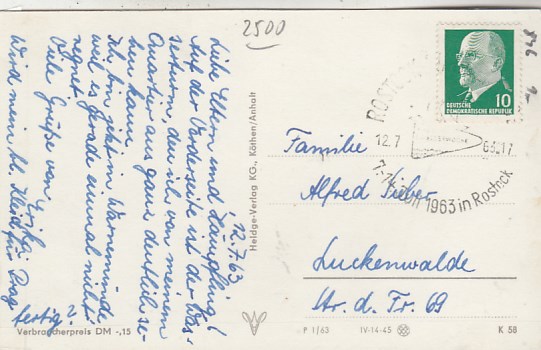 2500
12.7.63
Liebe Eltern und
Auf der Vorderseite ist der Was-
serturm, den ich von meinem
Quartier aus ganz deutlich se-
hen kann.
Ich bin jetzt in Warnemünde
weil es gerade einmal nicht
regnet.
Viele Grüße von
Wird mein bl. Kleid für Prag
fertig?
Verbraucherpreis DM -,15
Heldge-Verlag KG., Köthen/Anhalt
DEUTSCHE
DEMOKRATISCHE REPUBLIK
10
12.7 63.17
1963 in Rostock
Familie
Alfred
Luckenwalde
Str. d. Fr. 69
P 1/63 IV-14-45 K 58